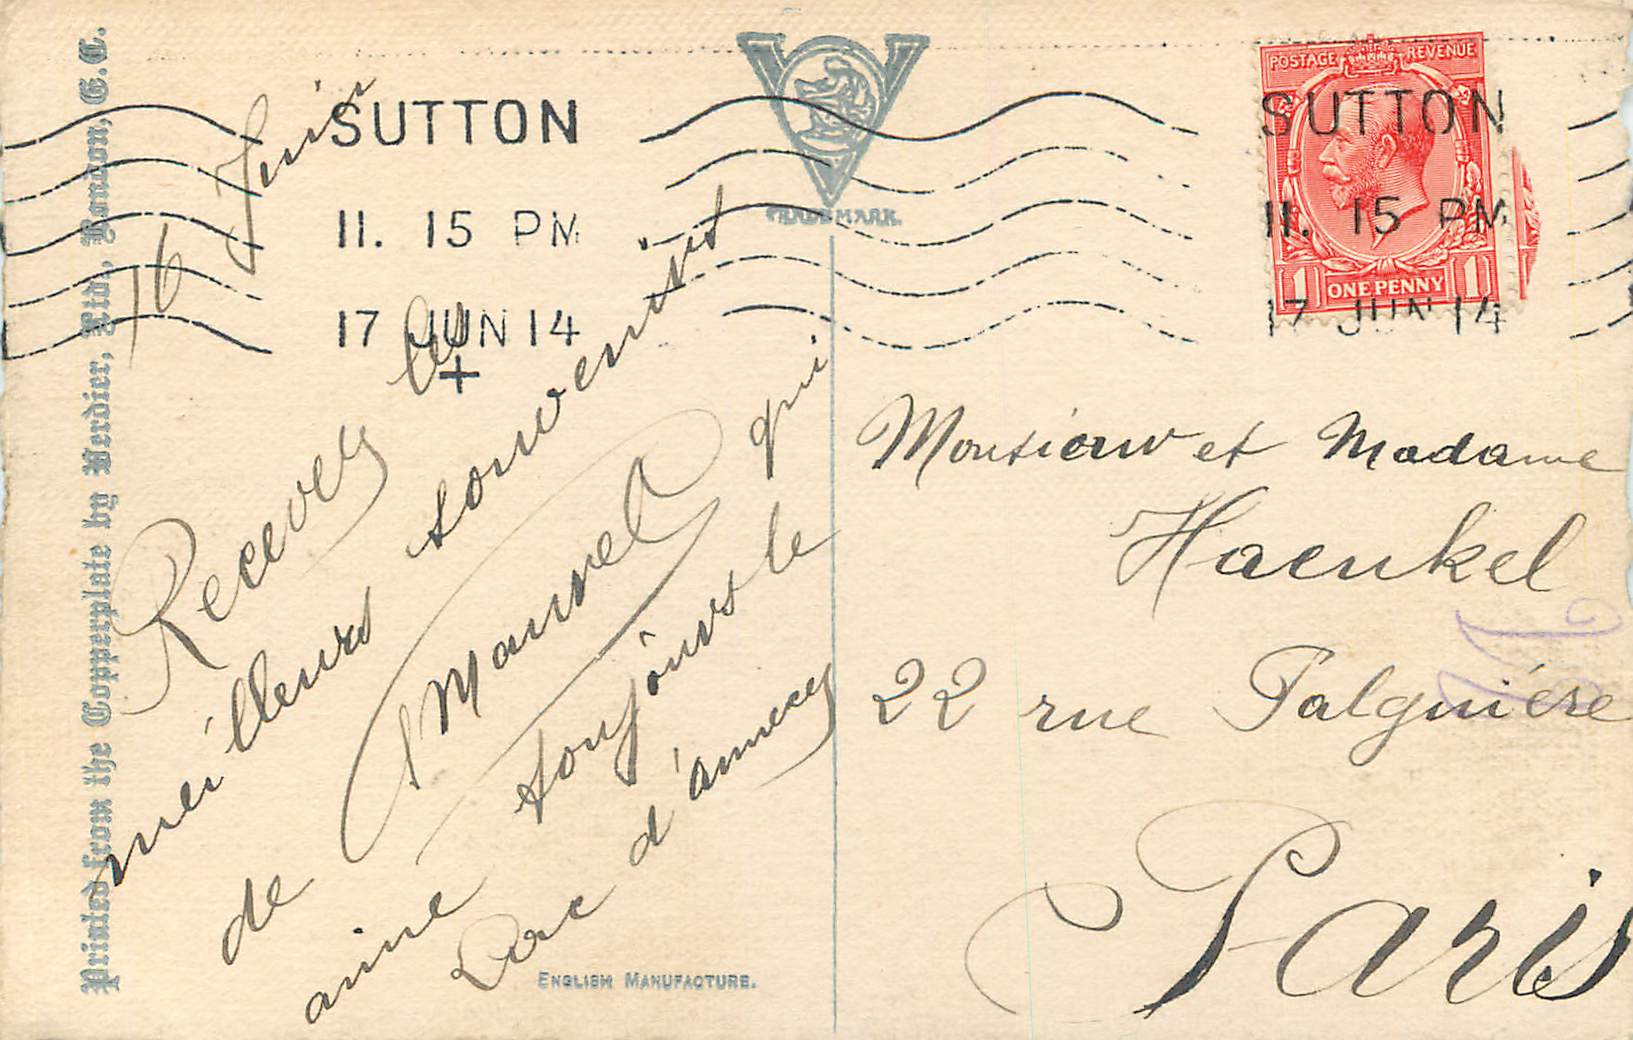 Printed from the Copperplate by Verdier, Ltd., London, E.C.
TRADE MARK.
SUTTON
11. 15 PM
17 JUN 14
+
POSTAGE REVENUE
ONE PENNY
1 1
SUTTON
11. 15 PM
17 JUN 14
16 Juin
Recevez les
meilleurs souvenirs
de Maurel qui
aime toujours le
Lac d'annecy
Monsieur et Madame
Haenkel
22 rue Falguière
Paris
ENGLISH MANUFACTURE.